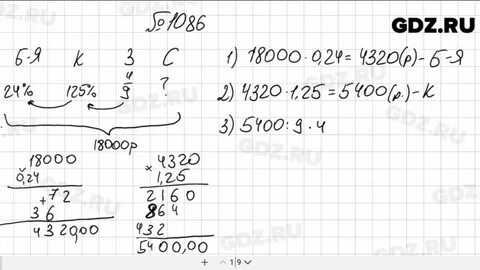 №1086
GDZ.RU
Б-Я К З С
24% 125% 4/9 ?
18000р
1) 18000·0,24=4320(р)-Б-Я
2) 4320·1,25=5400(р.)-К
3) 5400:9·4
18000
0,24
+72
36
4320,00
×4320
1,25
2160
864
432
5400,00
+ 1|9